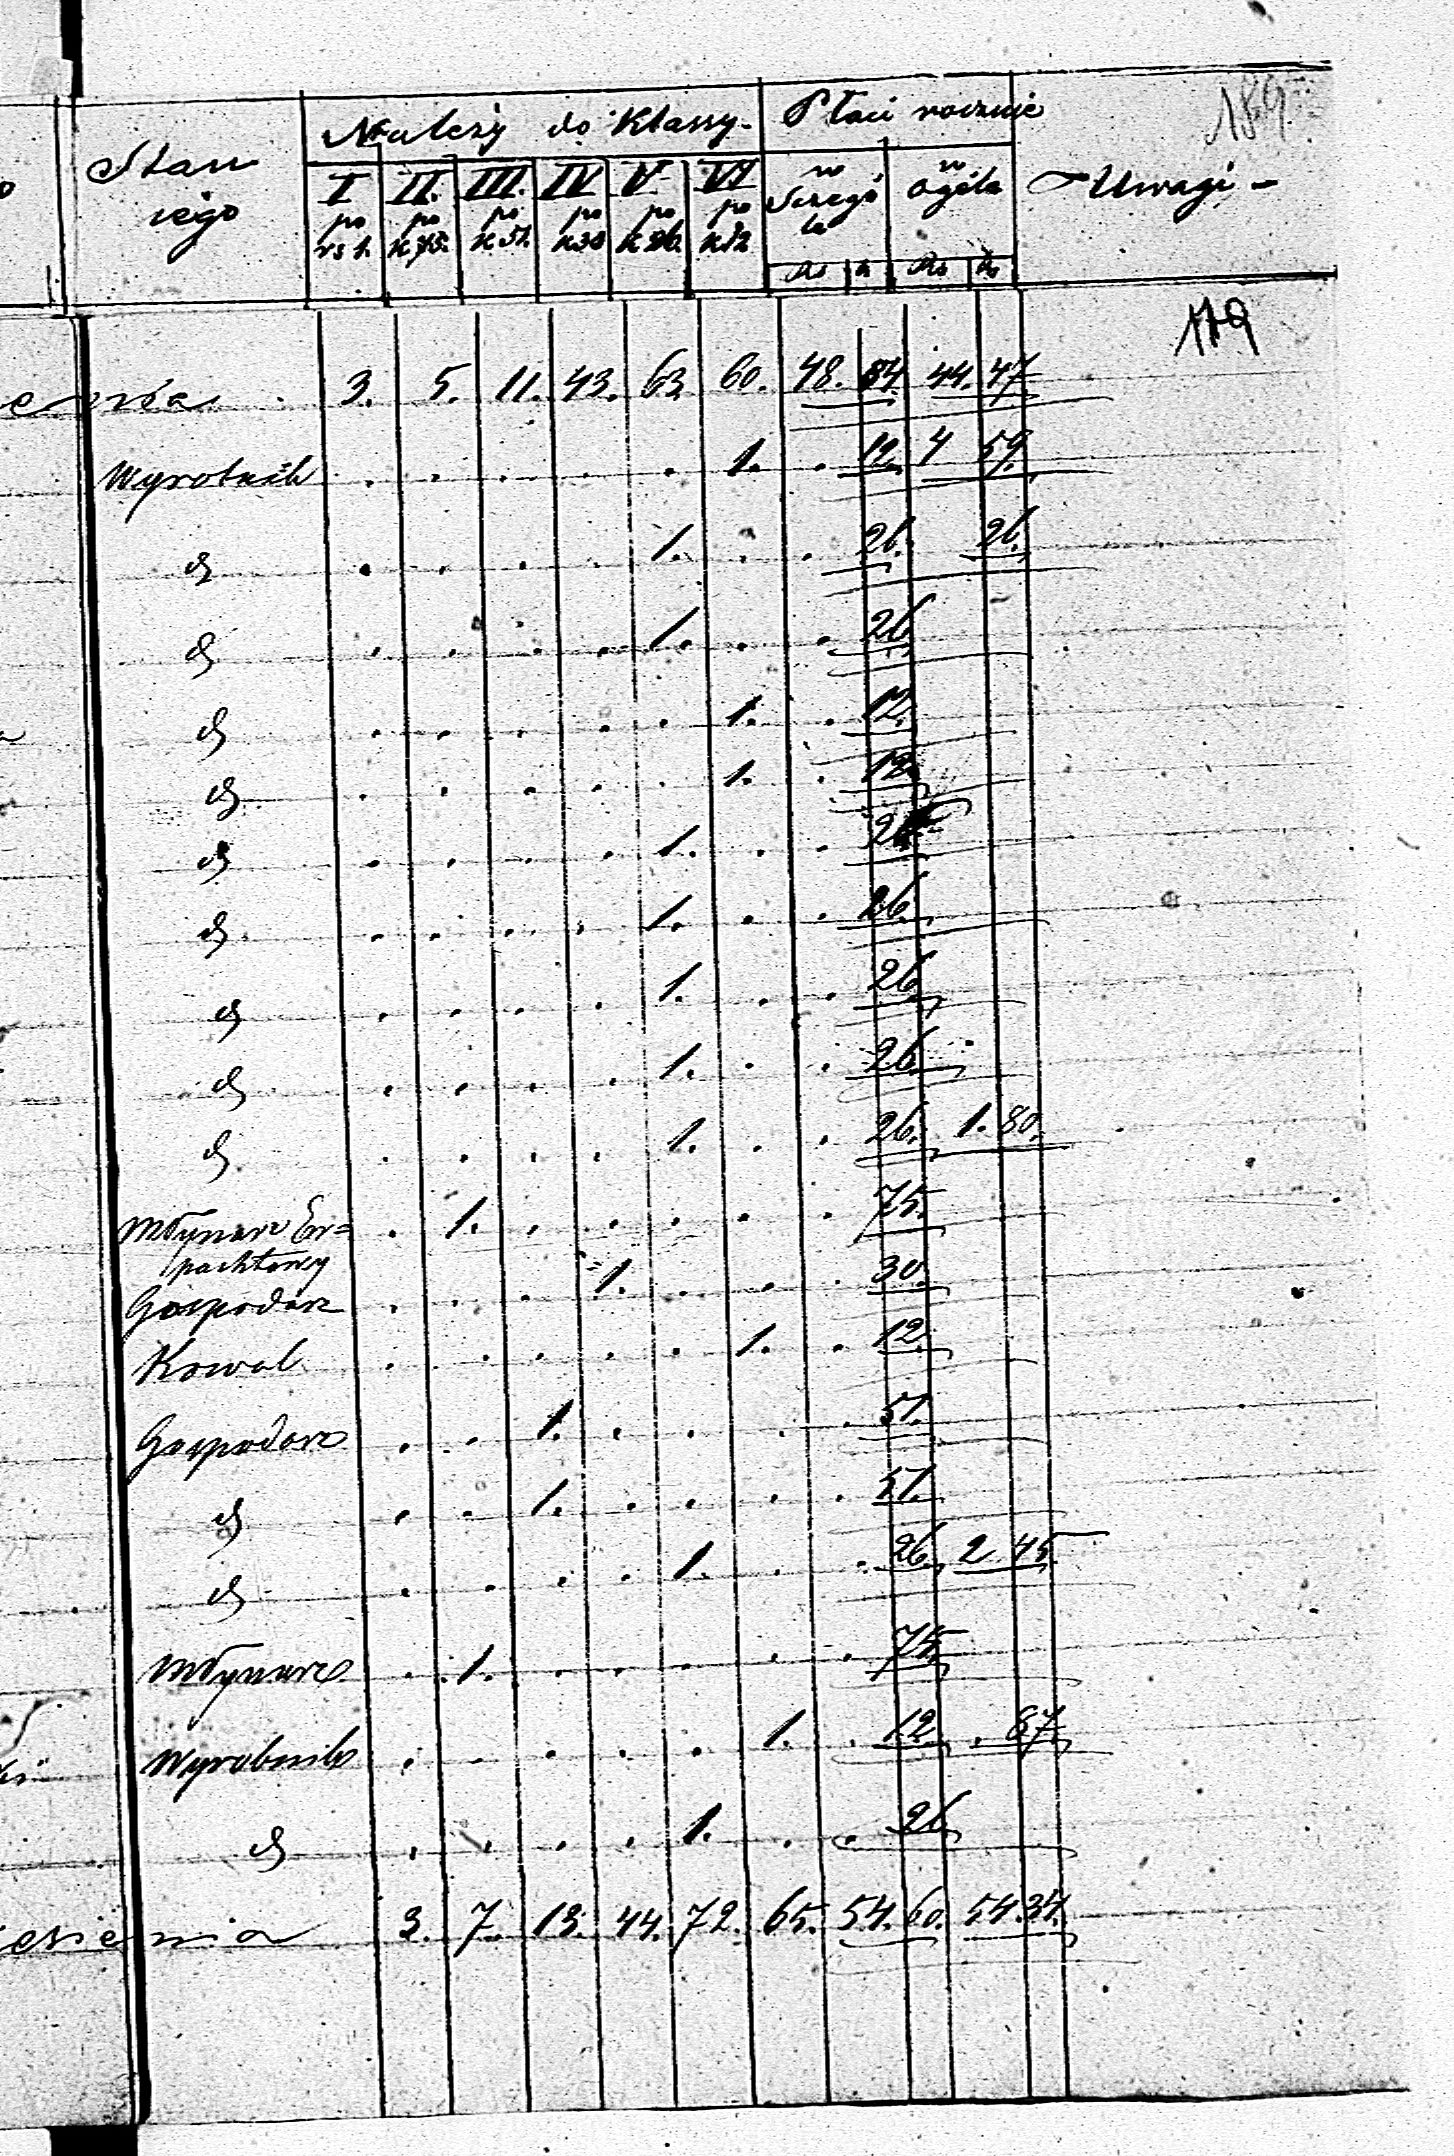 189
Stan iego Należy do Klassy Płaci rocznie Uwagi
I II. III. IV V VI w Szczególe w ogóle
po rs 1. po k 75. po k 51. po k 30 po k 26. po k 12 Rs k Rs k
179
3. 5. 11. 43. 63. 60. 48. 84. 44. 47
Wyrobnik . . . . . 1. . 12. 4 59.
d . . . . 1. . . 26. 26.
d . . . . 1. . . 26
d . . . . . 1. . 12.
d . . . . . 1. . 12
d . . . . 1. . . 26
d . . . . 1. . . 26.
d . . . . 1. . . 26
d . . . . 1. . . 26.
d . . . . 1. . . 26. 1. 80.
Młynarz Er= . 1. . . . . . 75.
pachtowy
Gospodarz . . . 1. . . . 30.
Kowal . . . . . 1. . 12.
Gospodarz . . 1. . . . . 51.
d . . 1. . . . . 51.
d . . . . 1. . . 26. 2 45
Młynarz . 1. . . . . . 75.
Wyrobnik . . . . . 1. . 12. . 87.
d . . . . 1. . . 26.
esienia 3. 7. 13. 44. 72. 65. 54. 60. 54. 34.